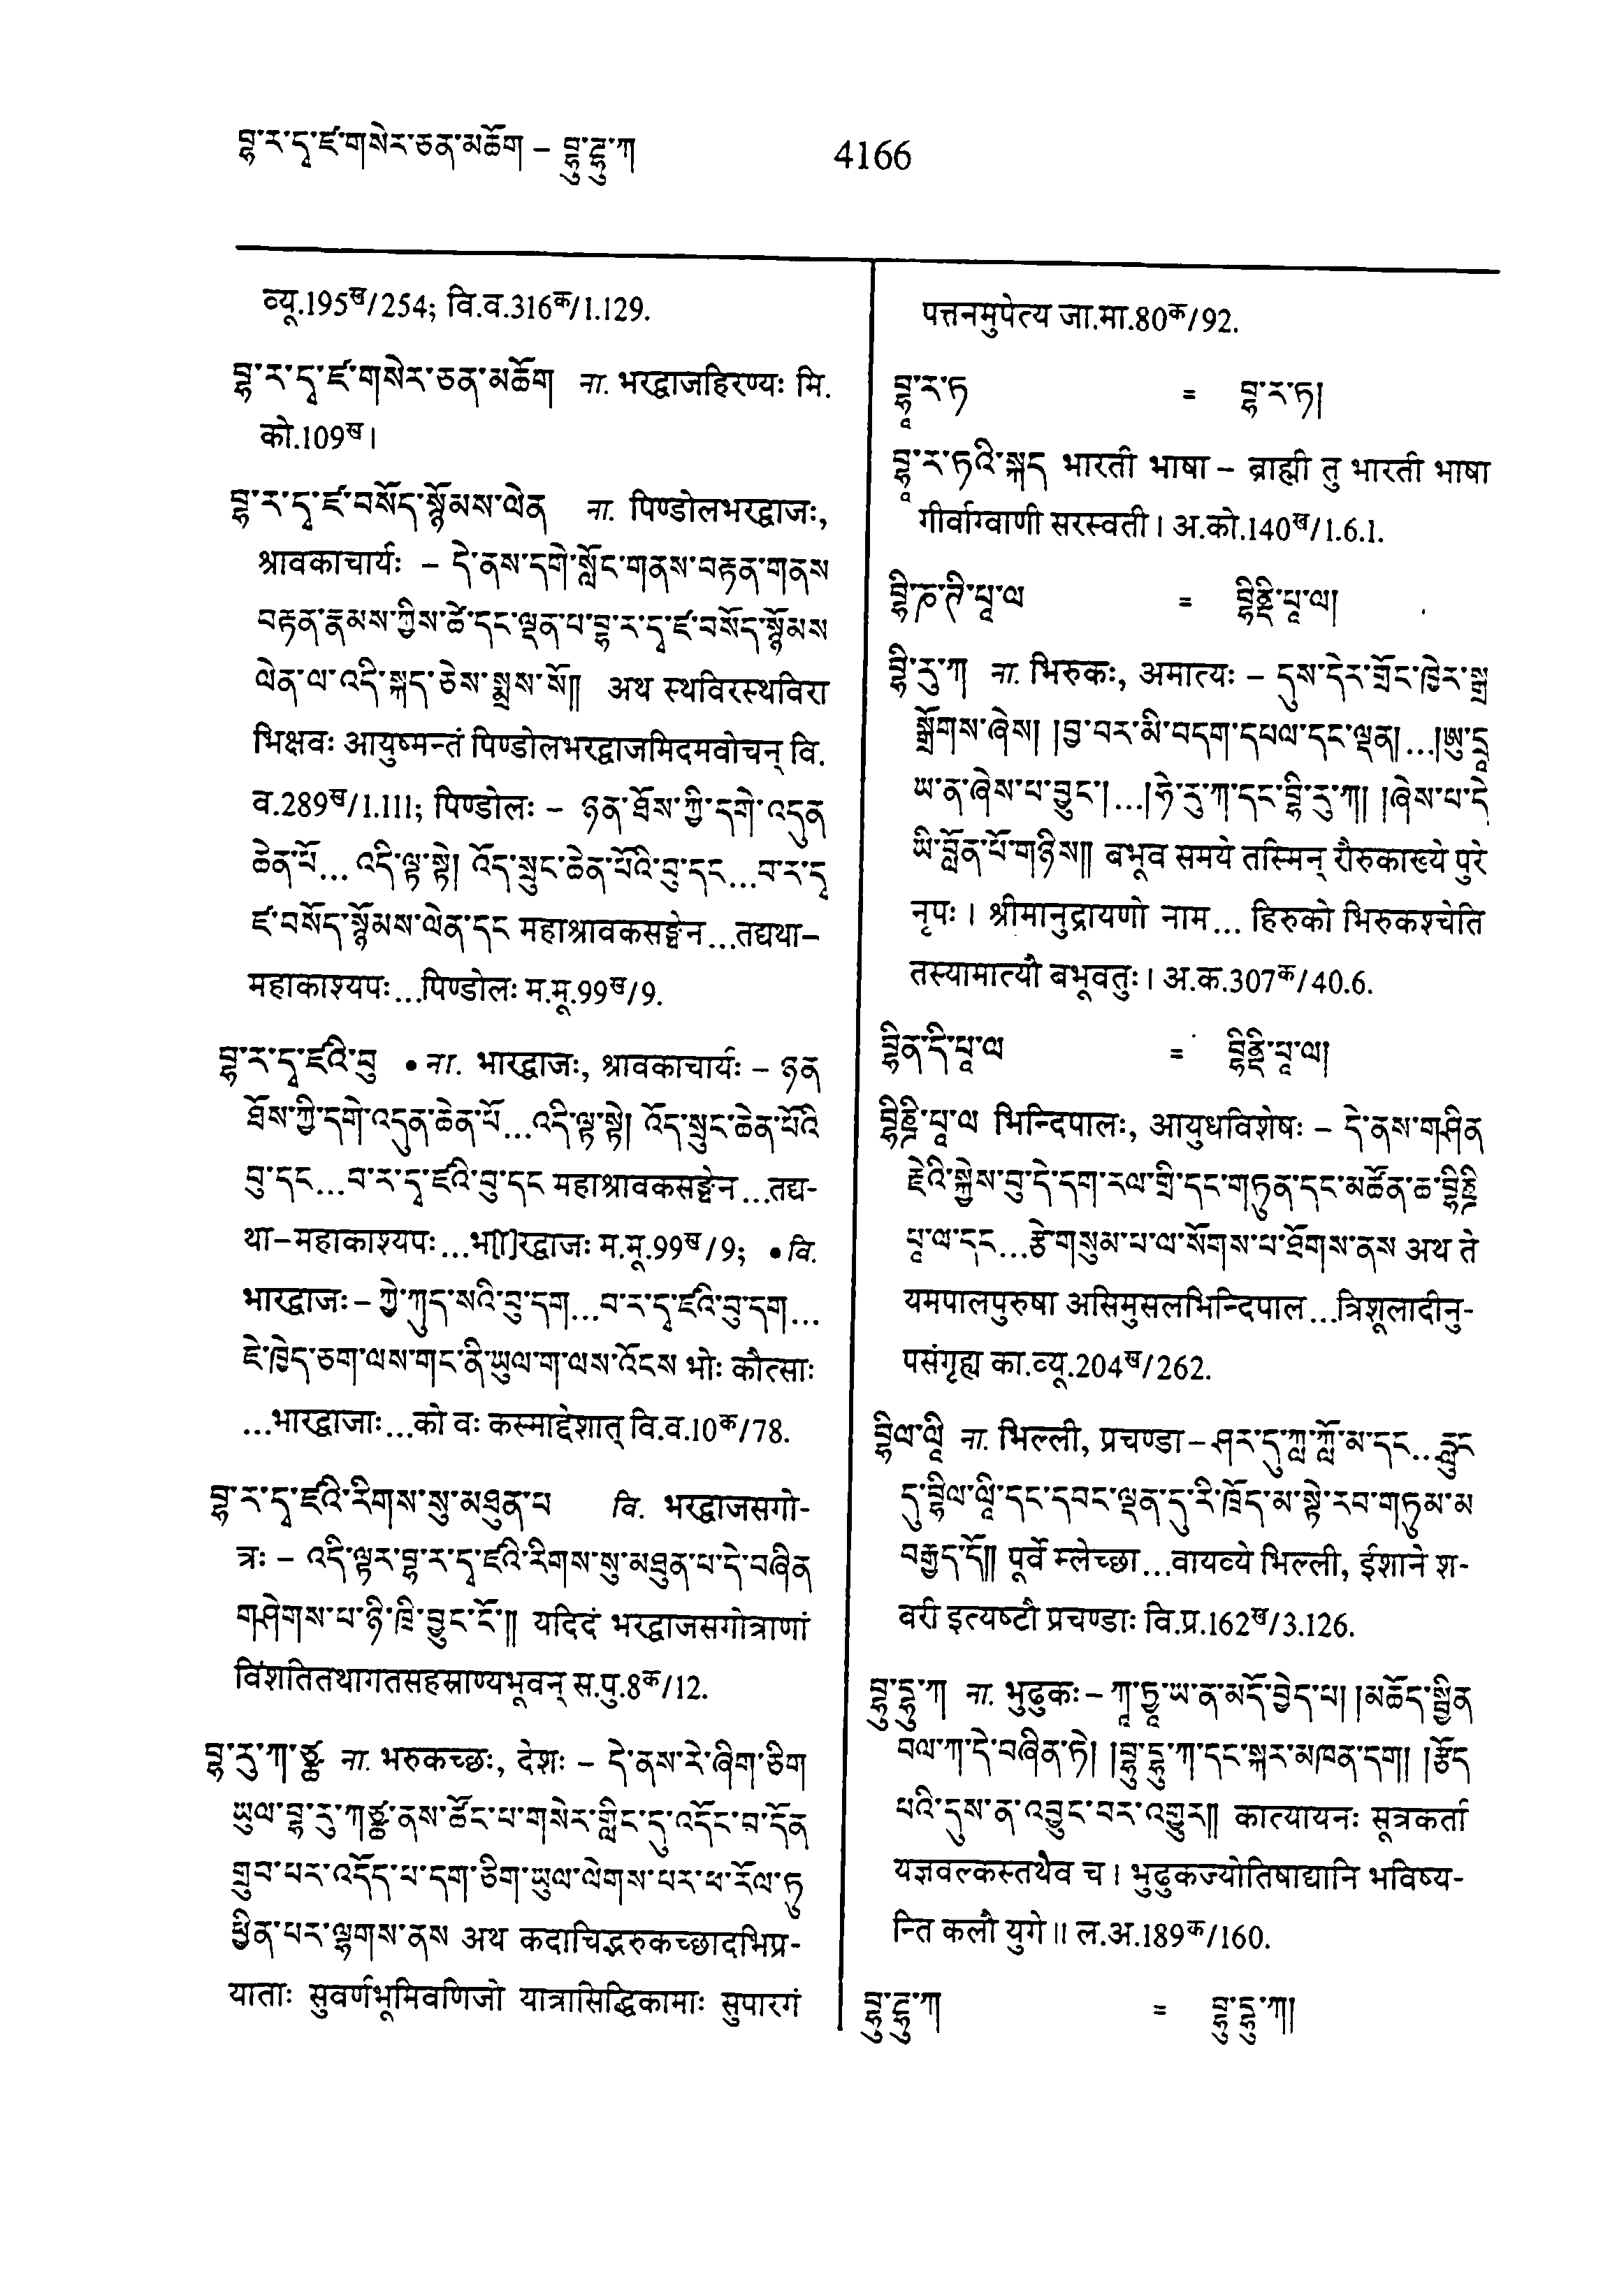 བྷ་ར་དྭ་ཛ་གསེར་ཅན་མཆོག – བྷུ་ཌྷུ་ཀ
4166
व्यू.195ख/254; वि.व.316क/1.129.
བྷ་ར་དྭ་ཛ་གསེར་ཅན་མཆོག ना. भरद्वाजहिरण्यः मि.
को.109ख।
བྷ་ར་དྭ་ཛ་བསོད་སྙོམས་ལེན ना. पिण्डोलभरद्वाजः,
श्रावकाचार्यः – དེ་ནས་དགེ་སློང་གནས་བརྟན་གནས
བརྟན་རྣམས་ཀྱིས་ཚེ་དང་ལྡན་པ་བྷ་ར་དྭ་ཛ་བསོད་སྙོམས
ལེན་ལ་འདི་སྐད་ཅེས་སྨྲས་སོ།། अथ स्थविरस्थविरा
भिक्षवः आयुष्मन्तं पिण्डोलभरद्वाजमिदमवोचन् वि.
व.289ख/1.111; पिण्डोलः – ཉན་ཐོས་ཀྱི་དགེ་འདུན
ཆེན་པོ... འདི་ལྟ་སྟེ། འོད་སྲུང་ཆེན་པོའི་བུ་དང...བ་ར་དྭ
ཛ་བསོད་སྙོམས་ལེན་དང महाश्रावकसङ्घेन...तद्यथा–
महाकाश्यपः...पिण्डोलः म.मू.99ख/9.
བྷ་ར་དྭ་ཛའི་བུ • ना. भारद्वाजः, श्रावकाचार्यः – ཉན
ཐོས་ཀྱི་དགེ་འདུན་ཆེན་པོ...འདི་ལྟ་སྟེ། འོད་སྲུང་ཆེན་པོའི
བུ་དང...བ་ར་དྭ་ཛའི་བུ་དང महाश्रावकसङ्घेन...तद्य-
था–महाकाश्यपः...भ[ा]रद्वाजः म.मू.99ख/9; • वि.
भारद्वाजः – ཀྱེ་ཀུད་སའི་བུ་དག...བ་ར་དྭ་ཛའི་བུ་དག...
ཇེ་ཁྱེད་ཅག་ལས་གང་ནི་ཡུལ་ག་ལས་འོངས भोः कौत्साः
...भारद्वाजाः...को वः कस्माद्देशात् वि.व.10क/78.
བྷ་ར་དྭ་ཛའི་རིགས་སུ་མཐུན་པ वि. भरद्वाजसगो-
त्रः – འདི་ལྟར་བྷ་ར་དྭ་ཛའི་རིགས་སུ་མཐུན་པ་དེ་བཞིན
གཤེགས་པ་ཉི་ཁྲི་བྱུང་ངོ་།། यदिदं भरद्वाजसगोत्राणां
विंशतितथागतसहस्राण्यभूवन् स.पु.8क/12.
བྷ་རུ་ཀ་ཙྪ ना. भरुकच्छः, देशः – དེ་ནས་རེ་ཞིག་ཅིག
ཡུལ་བྷ་རུ་ཀཙྪ་ནས་ཚོང་པ་གསེར་གླིང་དུ་འདོང་བ་དོན
གྲུབ་པར་འདོད་པ་དག་ཅིག་ཡུལ་ལེགས་པར་ཕ་རོལ་ཏུ
ཕྱིན་པར་ལྷགས་ནས अथ कदाचिद्भरुकच्छादभिप्र-
याताः सुवर्णभूमिवणिजो यात्रासिद्धिकामाः सुपारगं
पत्तनमुपेत्य जा.मा.80क/92.
བྷཱུ་ར་ཏ = བྷ་ར་ཏ།
བྷཱུ་ར་ཏའི་སྐད भारती भाषा – ब्राह्मी तु भारती भाषा
गीर्वाग्वाणी सरस्वती। अ.को.140ख/1.6.1.
བྷི་ཎ་ཌི་པཱ་ལ = བྷིནྡི་པཱ་ལ།
བྷི་རུ་ཀ ना. भिरुकः, अमात्यः – དུས་དེར་གྲོང་ཁྱེར་སྒྲ
སྒྲོགས་ཞེས། །བྱ་བར་མི་བདག་དཔལ་དང་ལྡན།...།ཨུ་དྲཱ
ཡ་ན་ཞེས་པ་བྱུང་།...།ཧེ་རུ་ཀ་དང་བྷི་རུ་ཀ། །ཞེས་པ་དེ
ཡི་བློན་པོ་གཉིས།། बभूव समये तस्मिन् रौरुकाख्ये पुरे
नृपः। श्रीमानुद्रायणो नाम... हिरुको भिरुकश्चेति
तस्यामात्यौ बभूवतुः। अ.क.307क/40.6.
བྷིན་དི་པཱ་ལ = བྷིནྡི་པཱ་ལ།
བྷིཎྜི་པཱ་ལ भिन्दिपालः, आयुधविशेषः – དེ་ནས་གཤིན
རྗེའི་སྐྱེས་བུ་དེ་དག་རལ་གྲི་དང་གཏུན་དང་མཚོན་ཆ་བྷིཎྜི
པཱ་ལ་དང...རྩེ་གསུམ་པ་ལ་སོགས་པ་ཐོགས་ནས अथ ते
यमपालपुरुषा असिमुसलभिन्दिपाल...त्रिशूलादीनु-
पसंगृह्य का.व्यू.204ख/262.
བྷིལ་ལཱི ना. भिल्ली, प्रचण्डा – ཤར་དུ་ཀླ་ཀློ་མ་དང...རླུང
དུ་བྷིལ་ལཱི་དང་དབང་ལྡན་དུ་རི་ཁྲོད་མ་སྟེ་རབ་གཏུམ་མ
བརྒྱད་དོ།། पूर्वे म्लेच्छा...वायव्ये भिल्ली, ईशाने श-
वरी इत्यष्टौ प्रचण्डाः वि.प्र.162ख/3.126.
བྷུ་ཌྷུ་ཀ ना. भुढुकः – ཀཱ་ཏྱཱ་ཡ་ན་མདོ་བྱེད་པ། །མཆོད་སྦྱིན
བལ་ཀ་དེ་བཞིན་ཏེ། །བྷུ་ཌྷུ་ཀ་དང་སྐར་མཁན་དག། །རྩོད
པའི་དུས་ན་འབྱུང་བར་འགྱུར།། कात्यायनः सूत्रकर्ता
यज्ञवल्कस्तथैव च। भुढुकज्योतिषाद्यानि भविष्य-
न्ति कलौ युगे॥ ल.अ.189क/160.
བྷུ་ཌྷུ་ཀ = བྷུ་ཌྷུ་ཀ།